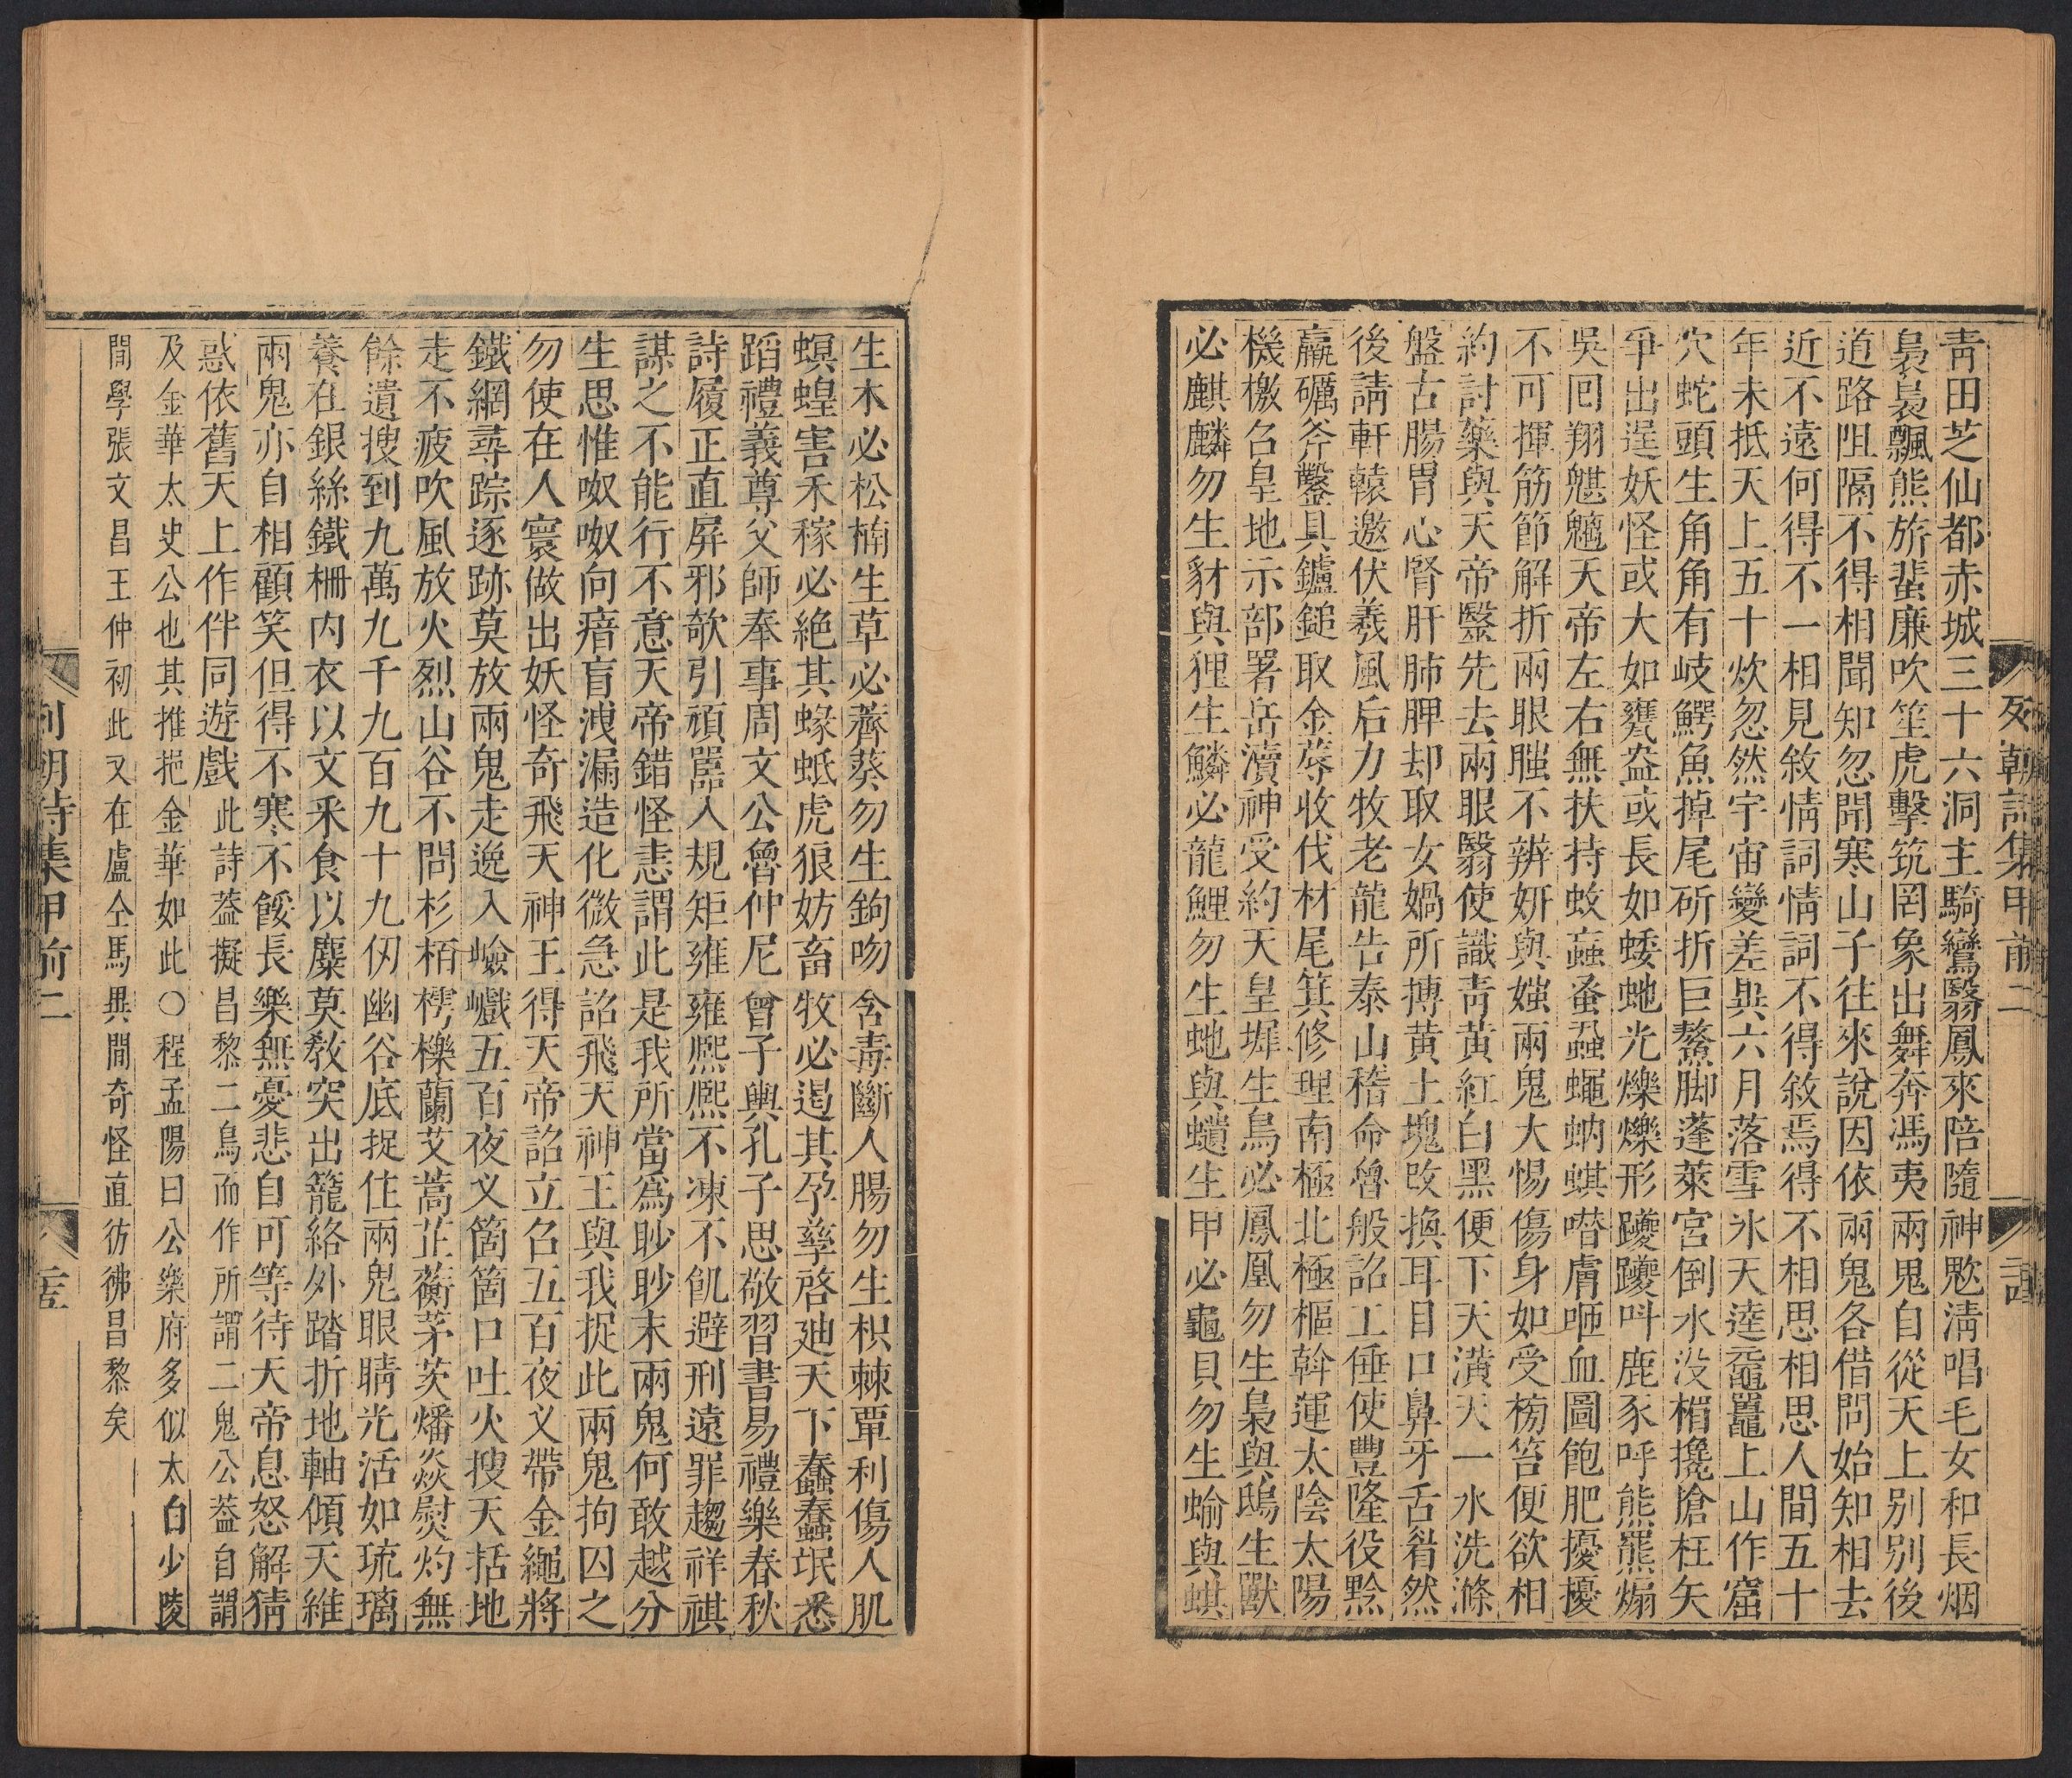 青田芝仙都赤城三十六洞主騎鸞翳鳳來陪隨神魃淸唱毛女和長烟
裊裊飄熊旂蜚廉吹笙虎擊筑罔象出舞奔馮夷兩鬼自從天上別別後
道路阻隔不得相聞知忽聞寒山子往來說因依兩鬼各借問始知相去
近不遠何得不一相見敘情詞情詞不得敘焉得不相思相思人間五十
年未抵天上五十炊忽然宇宙變差異六月落雪氷天逵黿鼉上山作窟
穴蛇頭生角角有岐鰐魚掉尾斫折巨鰲脚蓬萊宮倒水没楣攙搶枉矢
爭出逞妖怪或大如甕盎或長如蜲虵光爍爍形躨躨呌鹿豕呼熊羆煽
吳囘翔魌魖天帝左右無扶持蚊蝱蚤蝨蠅蚋蜞噆膚咂血圖飽肥擾擾
不可揮筋節解折兩眼䁗不辨妍與媸兩鬼大惕傷身如受榜笞便欲相
約討藥與天帝醫先去兩眼翳使識靑黃紅白黑便下天潢天一水洗滌
盤古腸胃心腎肝肺脾却取女媧所摶黃土塊改換耳目口鼻牙舌眉然
後請軒轅邀伏羲風后力牧老龍告泰山稽命魯般詔工倕使豐隆役黔
羸礪斧鑿具鑪鎚取金蓐收伐材尾箕修理南極北極樞斡運太陰太陽
機檄召皇地示部署岳瀆神受約天皇墀生鳥必鳳凰勿生梟與鴟生獸
必麒麟勿生豺與狸生鱗必龍鯉勿生虵與螘生甲必龜貝勿生蝓與蜞
列朝詩集甲前二
生木必松楠生草必薺葵勿生鉤吻含毒斷人腸勿生枳棘覃利傷人肌
螟蝗害禾稼必絕其蝝蚳虎狼妨畜牧必遏其孕孳啓廸天下蠢蠢氓悉
蹈禮義尊父師奉事周文公魯仲尼曾子輿孔子思敬習書易禮樂春秋
詩履正直屏邪欹引頑嚚入規矩雍雍熈熈不凍不飢避刑遠罪趨祥祺
謀之不能行不意天帝錯怪恚謂此是我所當爲眇眇末兩鬼何敢越分
生思惟呶呶向瘖盲洩漏造化微急詔飛天神王與我捉此兩鬼拘囚之
勿使在人寰做出妖怪奇飛天神王得天帝詔立召五百夜叉帶金繩將
鐵網尋踪逐跡莫放兩鬼走逸入嶮巇五百夜叉箇箇口吐火搜天括地
走不疲吹風放火烈山谷不問杉栢樗櫟蘭艾蒿芷蘅茅茨燔焱熨灼無
餘遺搜到九萬九千九百九十九仞幽谷底捉住兩鬼眼睛光活如琉璃
養在銀絲鐵柵内衣以文釆食以麋莫敎突出籠絡外踏折地軸傾天維
兩鬼亦自相顧笑但得不寒不餒長樂無憂悲自可等待天帝息怒解猜
惑依舊天上作伴同遊戲此詩葢擬昌黎二鳥而作所謂二鬼公葢自謂
及金華太史公也其推挹金華如此〇程孟陽曰公樂府多似太白少陵
間學張文昌王仲初此又在盧仝馬異間奇怪直彷彿昌黎矣